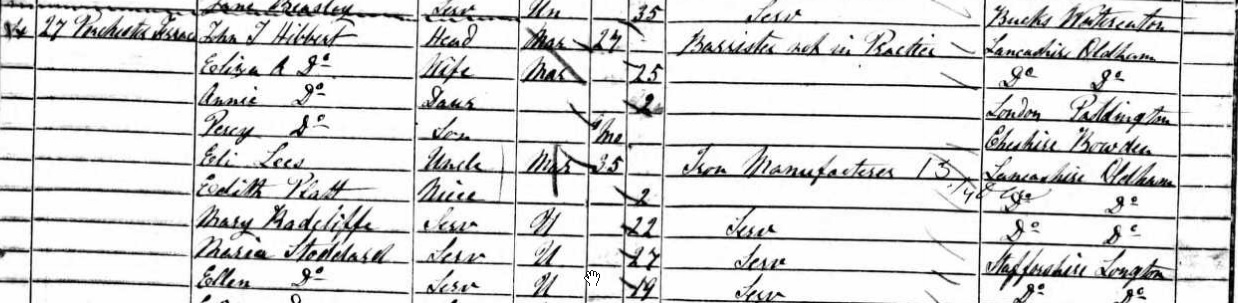 Jane Beasley Serv Un 35 Serv Bucks
27 Porchester Terrace John T Hibbert Head Mar 27 Barrister not in Practice Lancashire Oldham
Eliza A Do Wife Mar 25 Do Do
Annie Do Daur 2 London Paddington
Percy Do Son mo Cheshire Bowden
Eli Lees Uncle Mar 35 Iron Manufacturer Lancashire Oldham
Edith Platt Niece 2 Do Do
Mary Radcliffe Serv U 22 Serv Do Do
Maria Stoddard Serv U 27 Serv Staffordshire Longton
Ellen Do Serv U 19 Serv Do Do